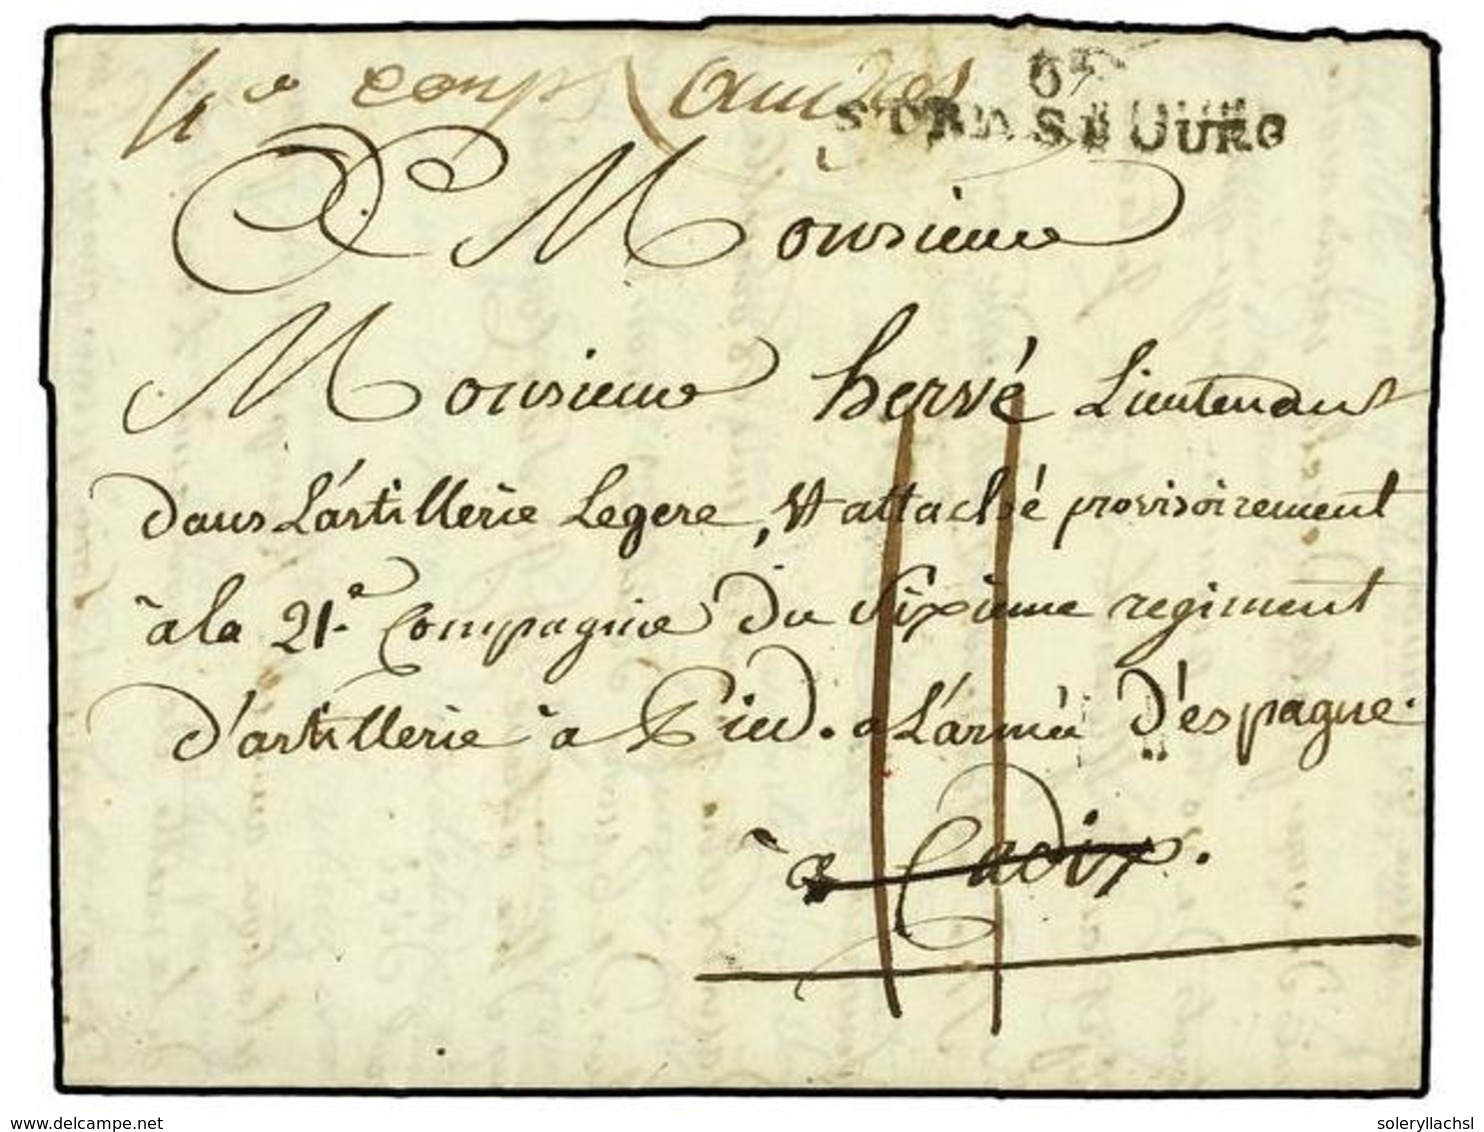 4e corps
67
STRASBOURG
Monsieur
Monsieur hervé Lieutenant
dans L'artillerie Legere, & attaché provisoirement
à la 21e Compagnie du Sixieme regiment
d'artillerie à Pied. a L'armée d'espagne.
à Cadix.
www.delcampe.net
soleryllachsl